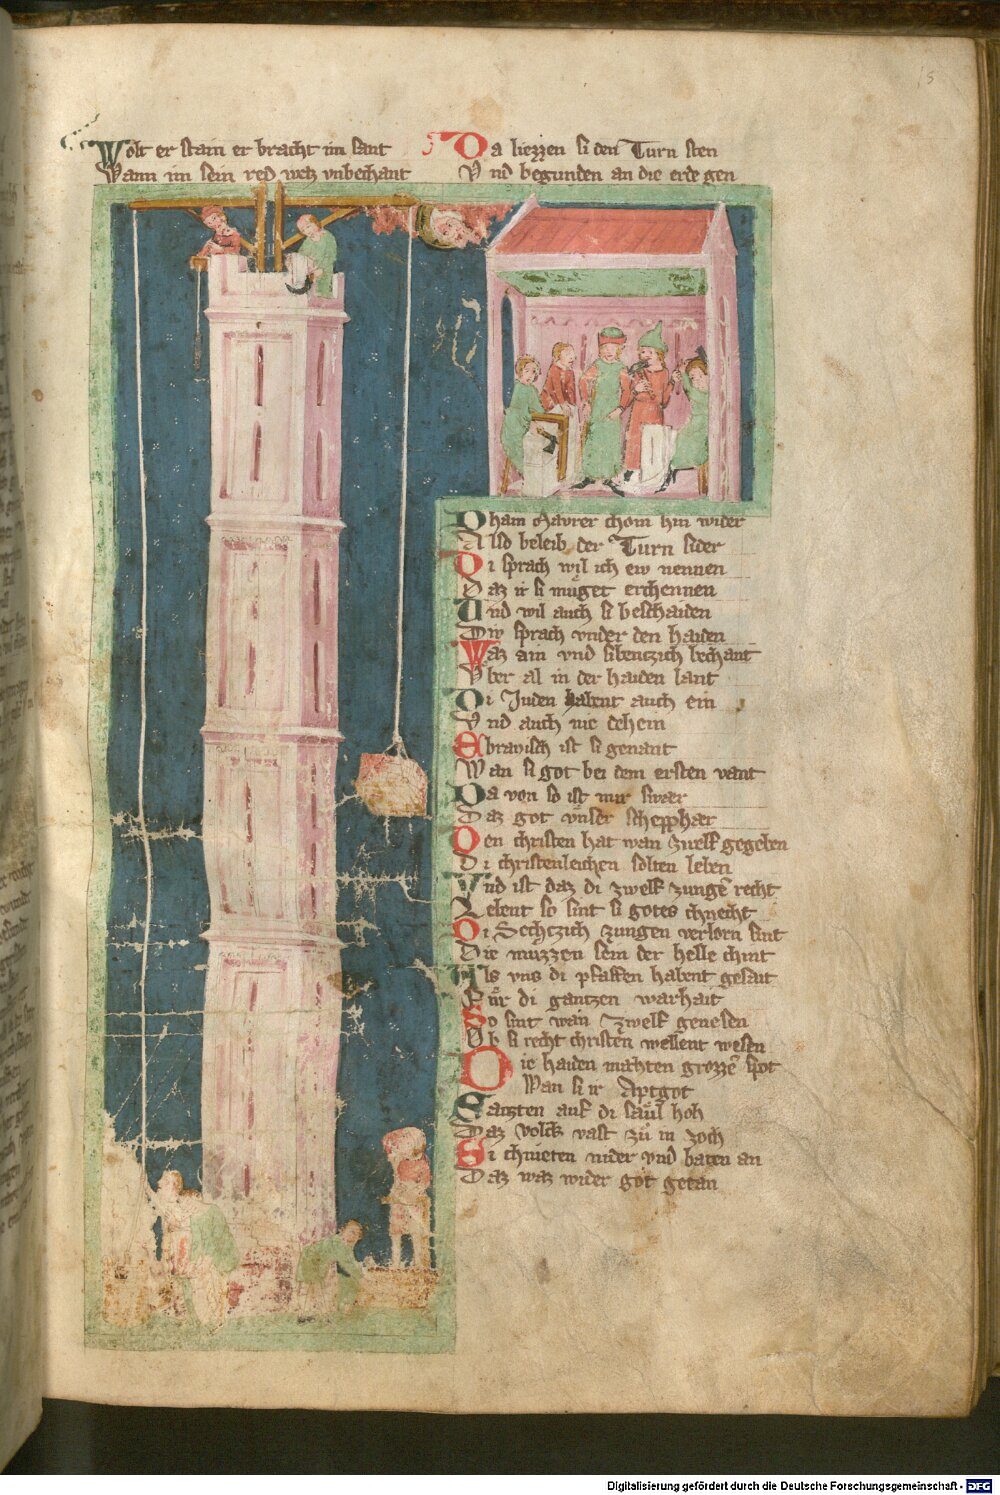 Wolt er stain er bracht im sant
Wann im sein red wetz vnbechant
Da liezzen si den Turn sten
Vnd begunden an die erde gen
Dham Maurer chom hin wider
Also beleib der Turn sider
Di sprach wil ich ew nennen
Daz ir si muget erchennen
Und wil auch si beschaiden
Diw sprach vnder den haiden
Waz ain vnd sibentzich bechant
Vber al in der haiden lant
Di Juden habent auch ein
Vnd auch nie dehein
Ebrayisch ist si genant
Wan si got bei dem ersten vant
Da von so ist mir swer
Daz got vnser schepphaer
Den christen hat wan zwelf gegeben
Di christenleichen solten leben
Vnd ist daz di zwelf zungē recht
Lebent so sint si gotes chnecht
Di Sechtzich zungen verlorn sint
Die muzzen sein der helle chint
Als vns di pfaffen habent gesait
Für di gantzen warhait
So sint wan zwelf genesen
Ob si recht christen wellent wesen
Die haiden machten grozzē spot
Wan si ir Aptgot
Satzten auf di säul hoh
Daz volck vast zů in zoch
Si chnieten nider vnd baten an
Daz waz wider got getan
15
Digitalisierung gefördert durch die Deutsche Forschungsgemeinschaft - DFG